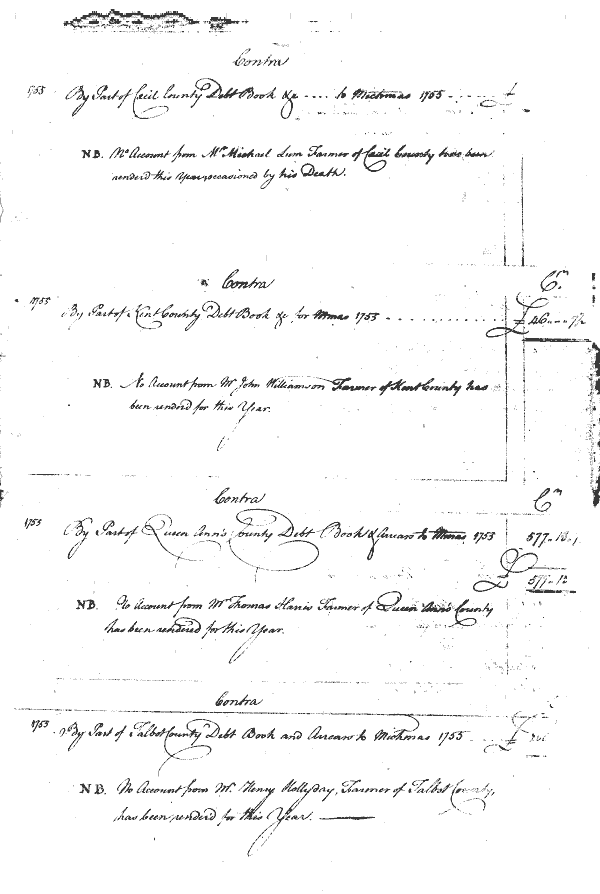 Contra
1753 By Part of Cecil County Debt Book &c .... to Michmas 1753 ..... £
NB. No Account from Mr Michael Lum Farmer of Cecil County has been
renderd this Year, occasioned by his Death.
Contra Cr.
1753 By Part of Kent County Debt Book &c for Mmas 1753 ........ £ 46
NB. No Account from Mr John Williamson Farmer of Kent County has
been renderd for this Year.
Contra Cr
1753 By Part of Queen Ann's County Debt Book & Arrears to Mmas 1753 577-13-1
£ 577-13
NB. No Account from Mr Thomas Harris Farmer of Queen Ann's County
has been rendered for this Year.
Contra
1753 By Part of Talbot County Debt Book and Arrears to Michmas 1753 .... £
NB. No Account from Mr. Henry Hollyday, Farmer of Talbot County,
has been renderd for this Year.